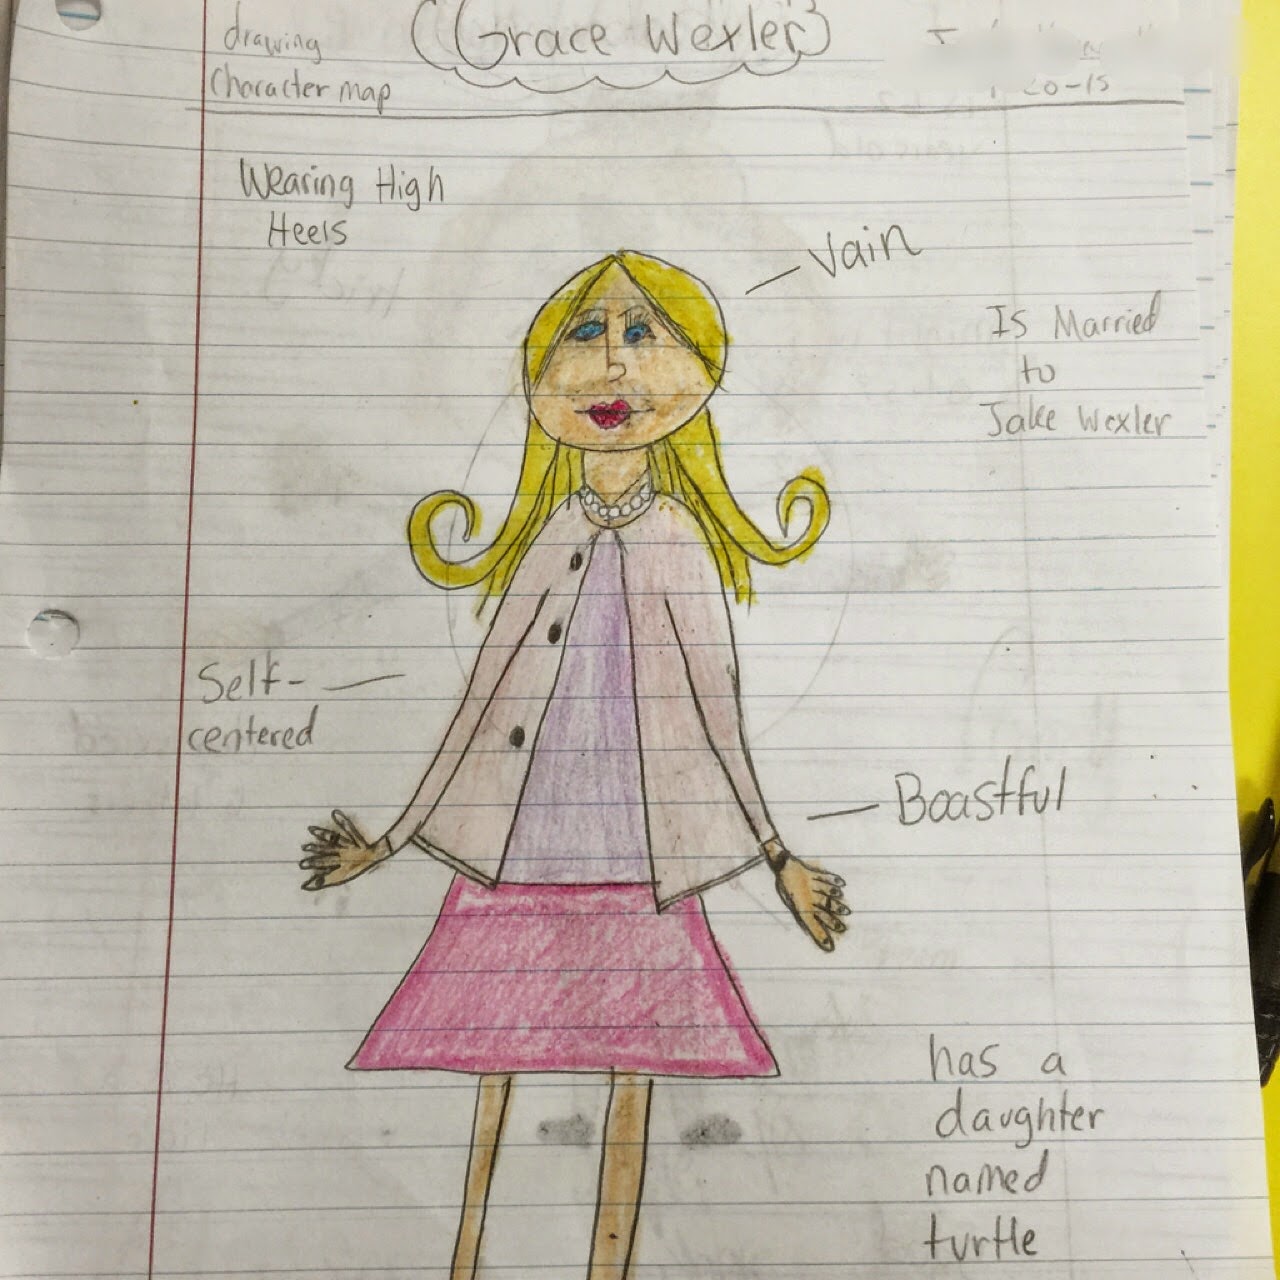 drawing
Character map
Grace Wexler
20-15
Wearing High
Heels
Vain
Is Married
to
Jake Wexler
Self-
centered
Boastful
has a
daughter
named
turtle